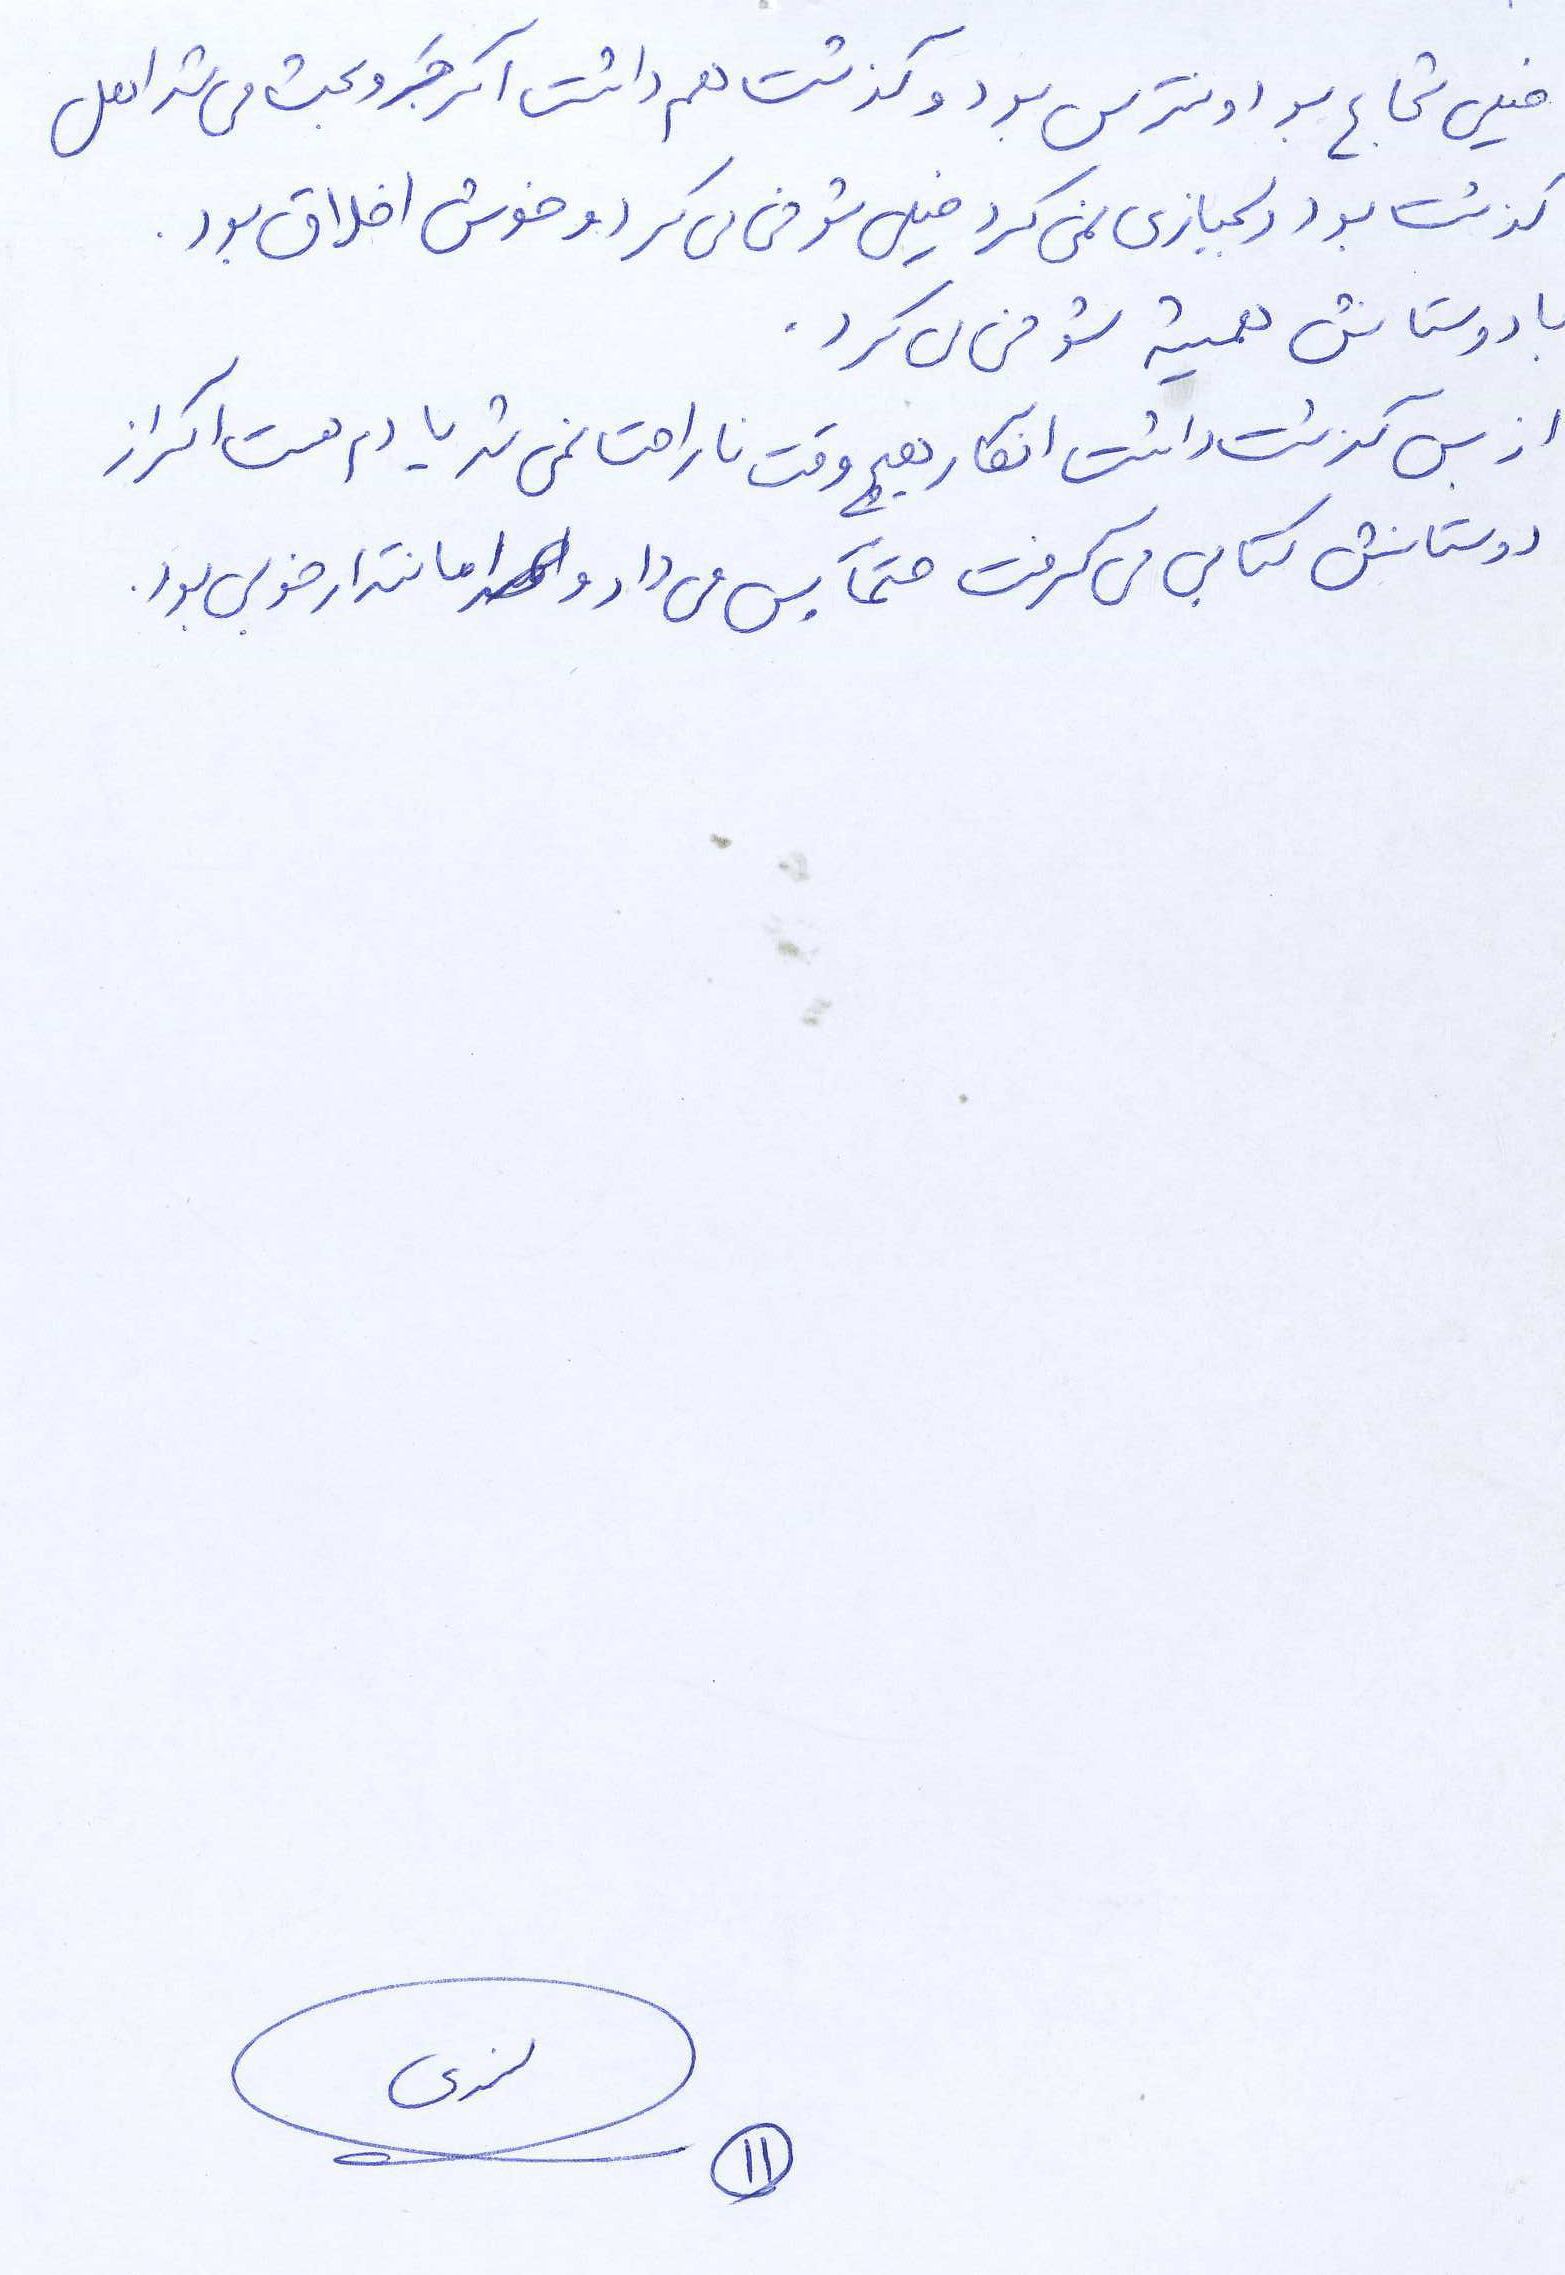 خیلی شجاع بود و نترس بود و گذشت هم داشت اگر جَر و بحث می شد اهل
گذشت بود و لجبازی نمی کرد خیلی شوخی می کرد و خوش اخلاق بود.
با دوستانش همیشه شوخی می کرد.
از بس گذشت داشت انگار هیچ وقت ناراحت نمی شد یادم هست اگر از
دوستانش کتابی می گرفت حتماً پس می داد و امانتدار خوبی بود.
۱۱